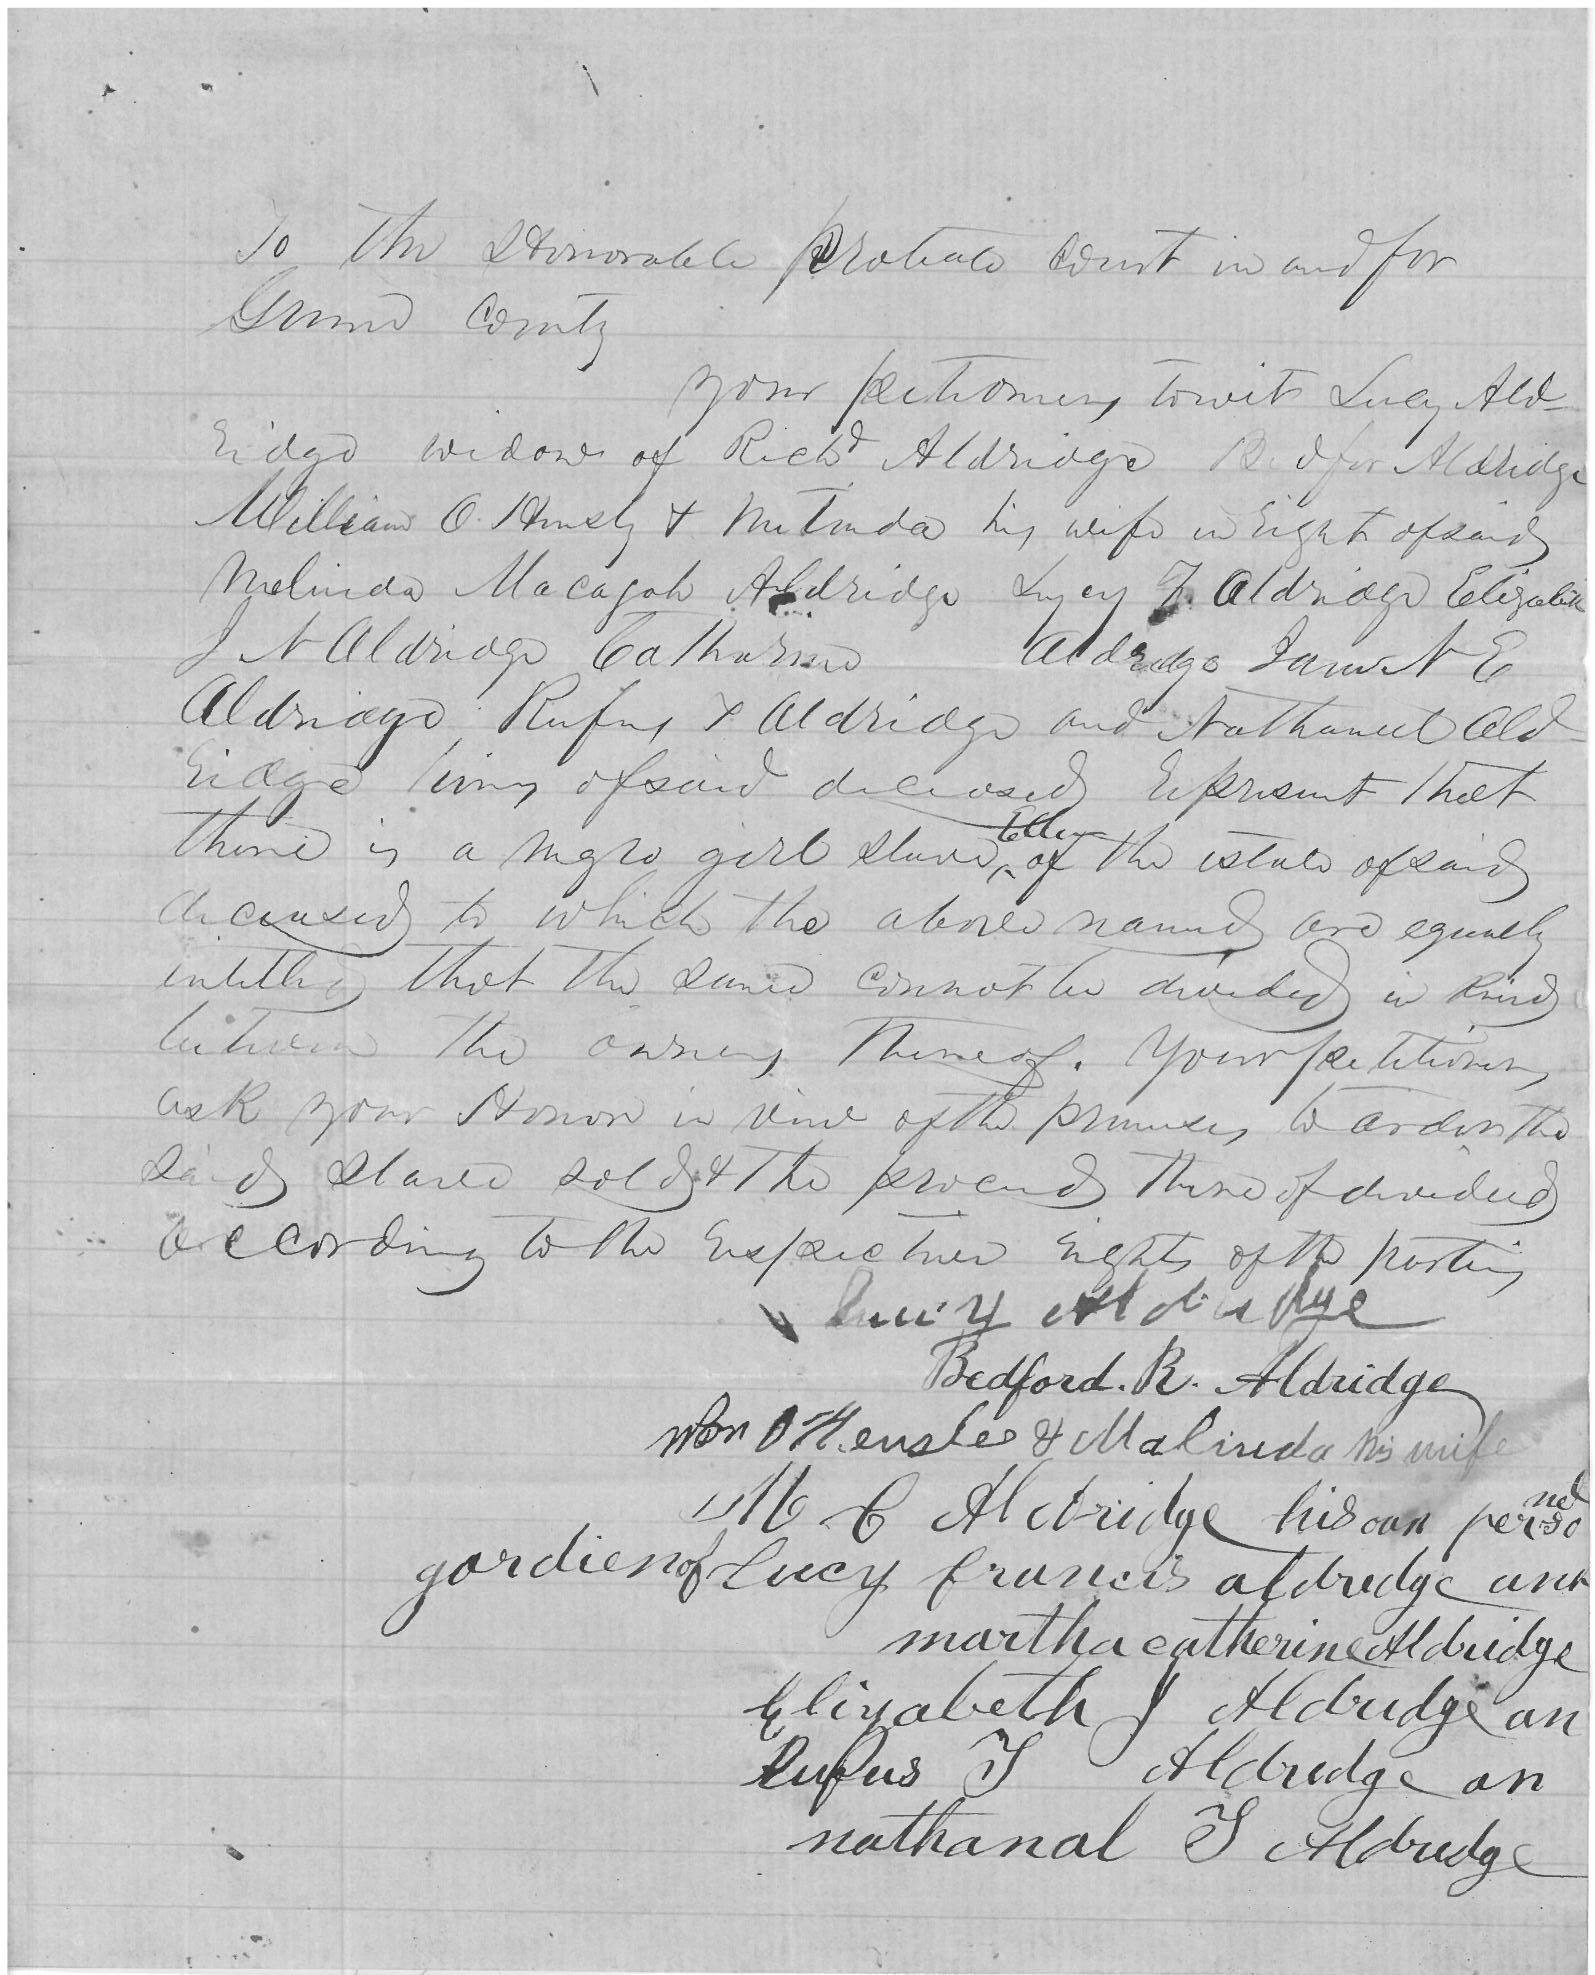 To the Honorable probate Court in and for
Green County
your petitioners towit Lucy Ald-
ridge widow of Richd Aldridge Bedfor Aldridge
William O. Hensly & Melinda his wife in right of said
Melinda Macagah Aldridge Lucy F. Aldridge Elizabeth
J N Aldridge Catharine Aldredge James N E
Aldridge Rufus Aldridge and Nathaniel Ald-
ridge heirs of said deceased represent that
there is a negro girl slave Ellen of the estate of said
deceased to which the above named are equally
intitled that the same cannot be divided in kind
between the owners thereof. Your petitioners
ask your Honor in view of the premises to order the
said slave sold & the proceeds thereof divided
according to the respective rights of the parties
Lucy Aldridge
Bedford. R. Aldridge
Wm O Henslee & Malinda his wife
M C Aldridge his own person
gardien of Lucy francis aldredge and
martha catherine Aldridge
Elizabeth J Aldredge an
Rufus T Aldredge an
nathanal T Aldredge